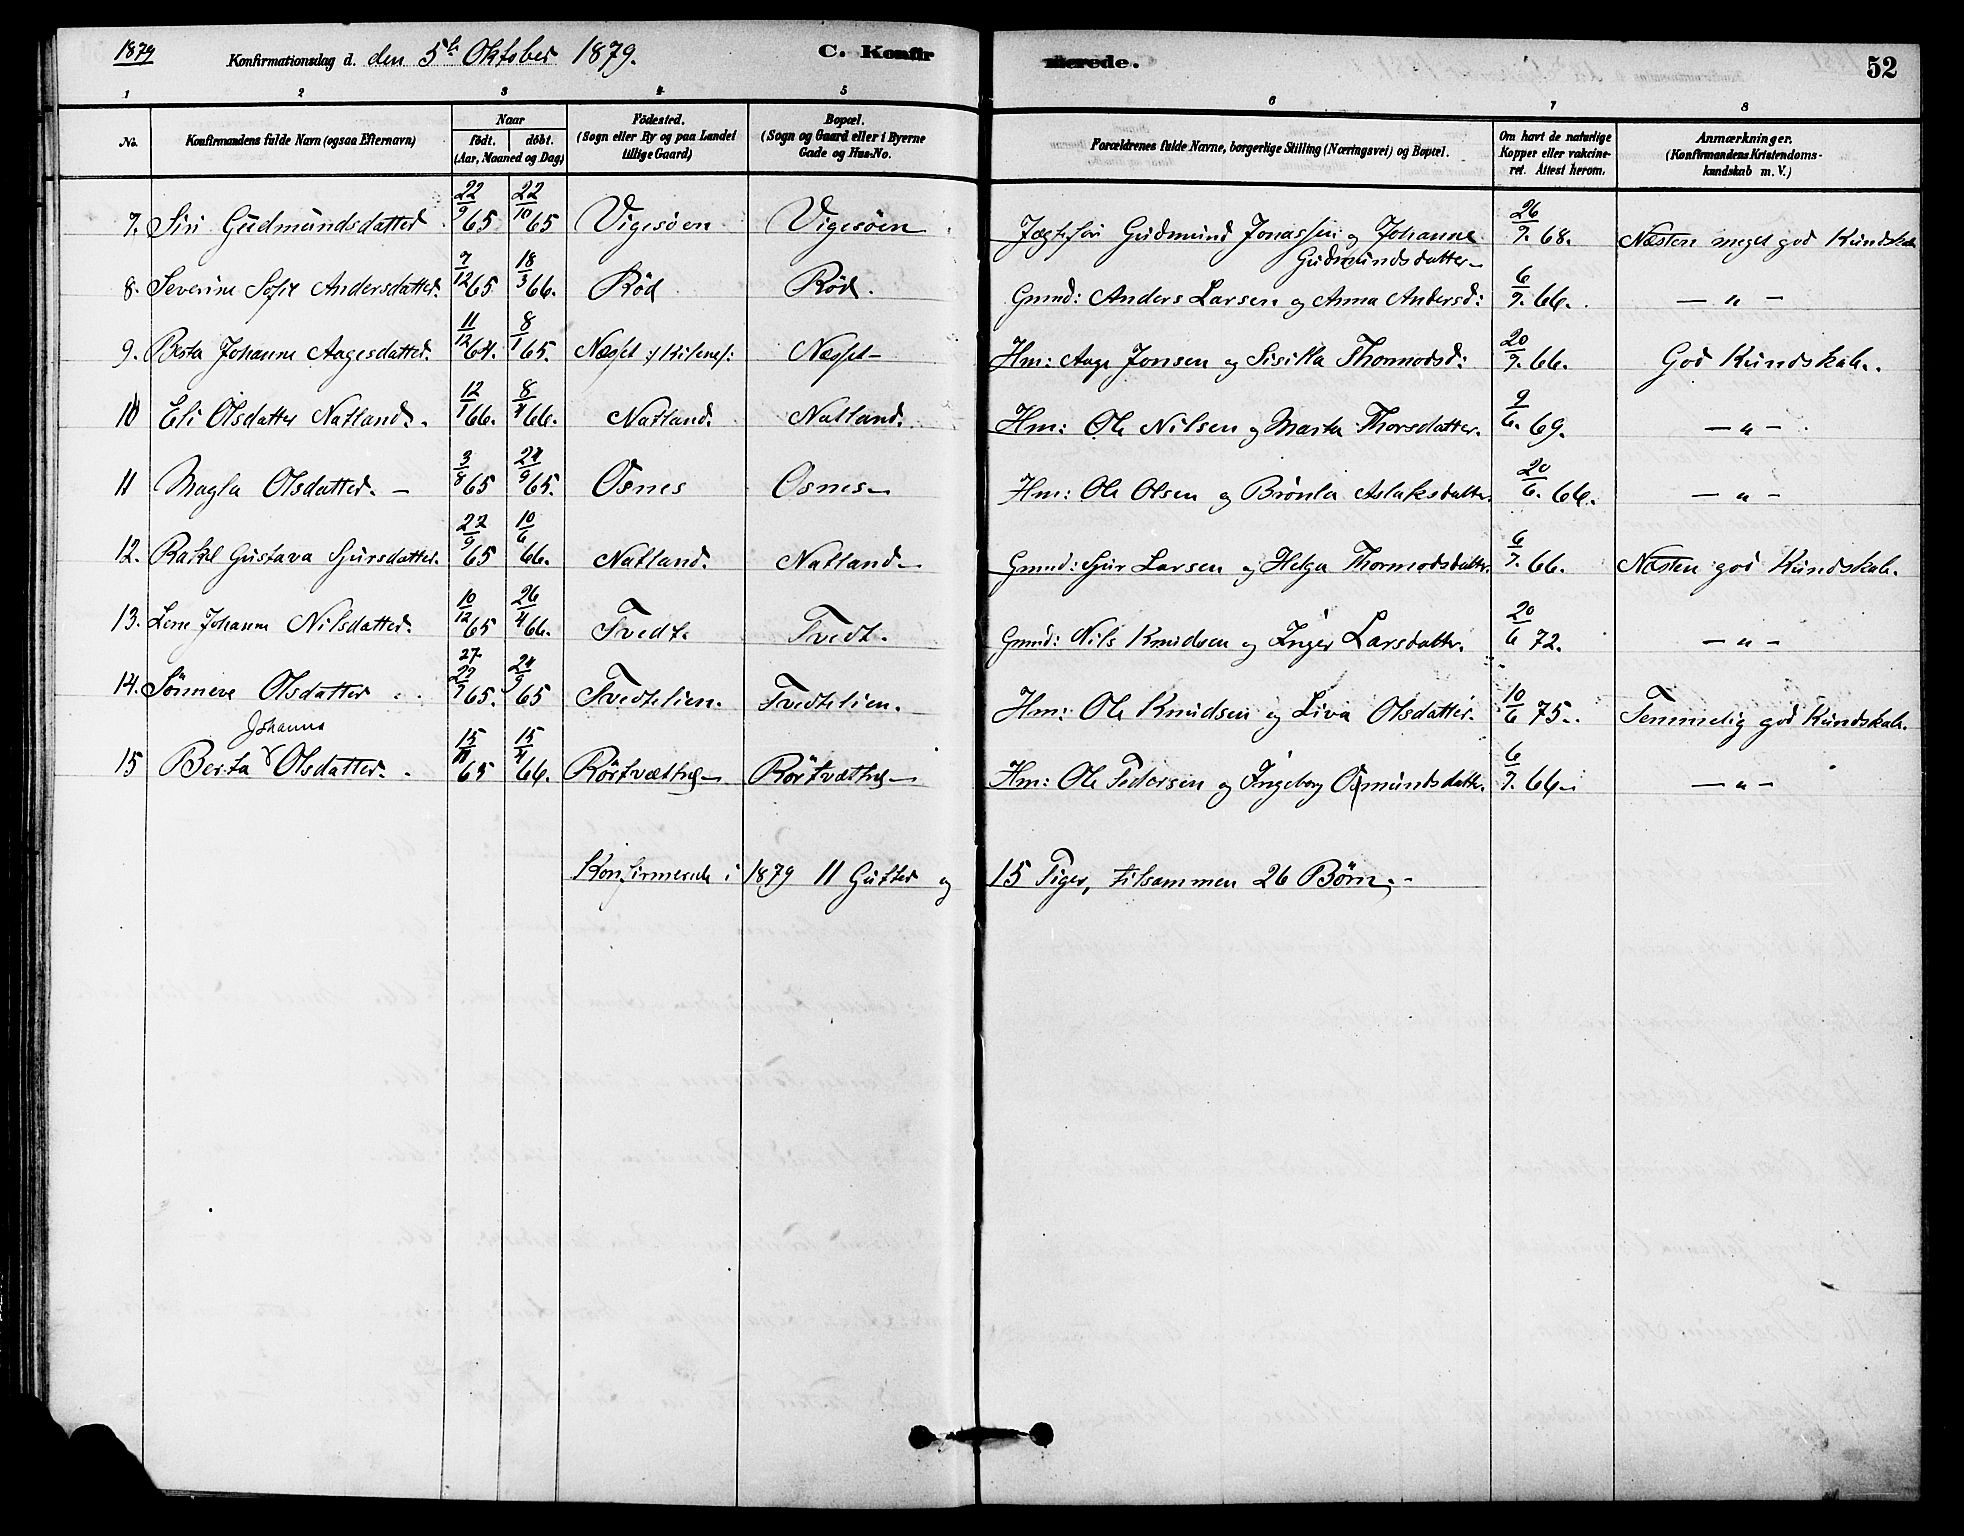 1879 Konfirmationsdag d. den 5te Oktober 1879. C. Konfirmerede. 52
1 2 3 4 5 6 7 8
No. Konfirmandens fulde Navn (ogsaa Efternavn) Naar født. døbt. (Aar, Maaned og Dag) Fødested. (Sogn eller By og paa Landet tillige Gaard) Bopæl. (Sogn og Gaard eller i Byerne Gade og Hus-No. Forældrenes fulde Navne, borgerlige Stilling (Næringsvei) og Bopæl. Om havt de naturlige Kopper eller vakcineret. Attest herom. Anmærkninger. (Konfirmandens Kristendomskundskab m. V.)
7. Siri Gudmundsdatter 22/9 65 22/10 65 Vigesöen Vigesöen Gudmund Jonassen og Johanne Gudmundsdatter 26/7. 68. Næsten meget god Kundskab
8. Severine Sofie Andersdatter. 7/12 65 18/3 66. Röd Röd. Grmd: Anders Larsen og Anna Andersd: 6/7. 66. — " —
9. Berta Johanne Aagesdatter. 11/12 64. 8/1 65. Næsset Næsset Hm: Aage Jonsen og Sisilla Thormodsd: 20/7. 66. God Kundskab.
10 Eli Olsdatter Natland. 12/1 66. 8/4 66. Natland. Natland. Hm: Ole Nilsen og Marta Thorsdatter. 9/6. 69. — " —
11 Magla Olsdatter. 3/8 65 24/9 65. Osnes Osnes Hm: Ole Olsen og Brönla Aslaksdatter. 20/6. 66. — " —
12. Rakel Gustava Sjursdatter. 22/9 65 10/6 66. Natland. Natland. Grmd: Sjur Larsen og Helga Thormodsdatter. 6/7. 66. Næsten god Kundskab.
13. Lene Johanne Nilsdatter. 10/12 65 26/4 66. Tvedt. Tvedt. Grmd: Nils Knudsen og Inger Larsdatter. 20/6 72. — " —
14. Sönneve Olsdatter 27. 22/7 65. 24/9 65 Tvedtelien. Tvedtelien. Hm: Ole Knudsen og Liva Olsdatter. 10/6 75. Temmelig god Kundskab.
15 Berta Johanna Olsdatter. 15/11 65 15/4 66. Rörtvætthg Rörtvætthg Hm: Ole Pedersen og Ingeborg Osmundsdatter. 6/7. 66. — " —
Konfirmerede i 1879 11 Gutter og 15 Piger, tilsammen 26 Börn.